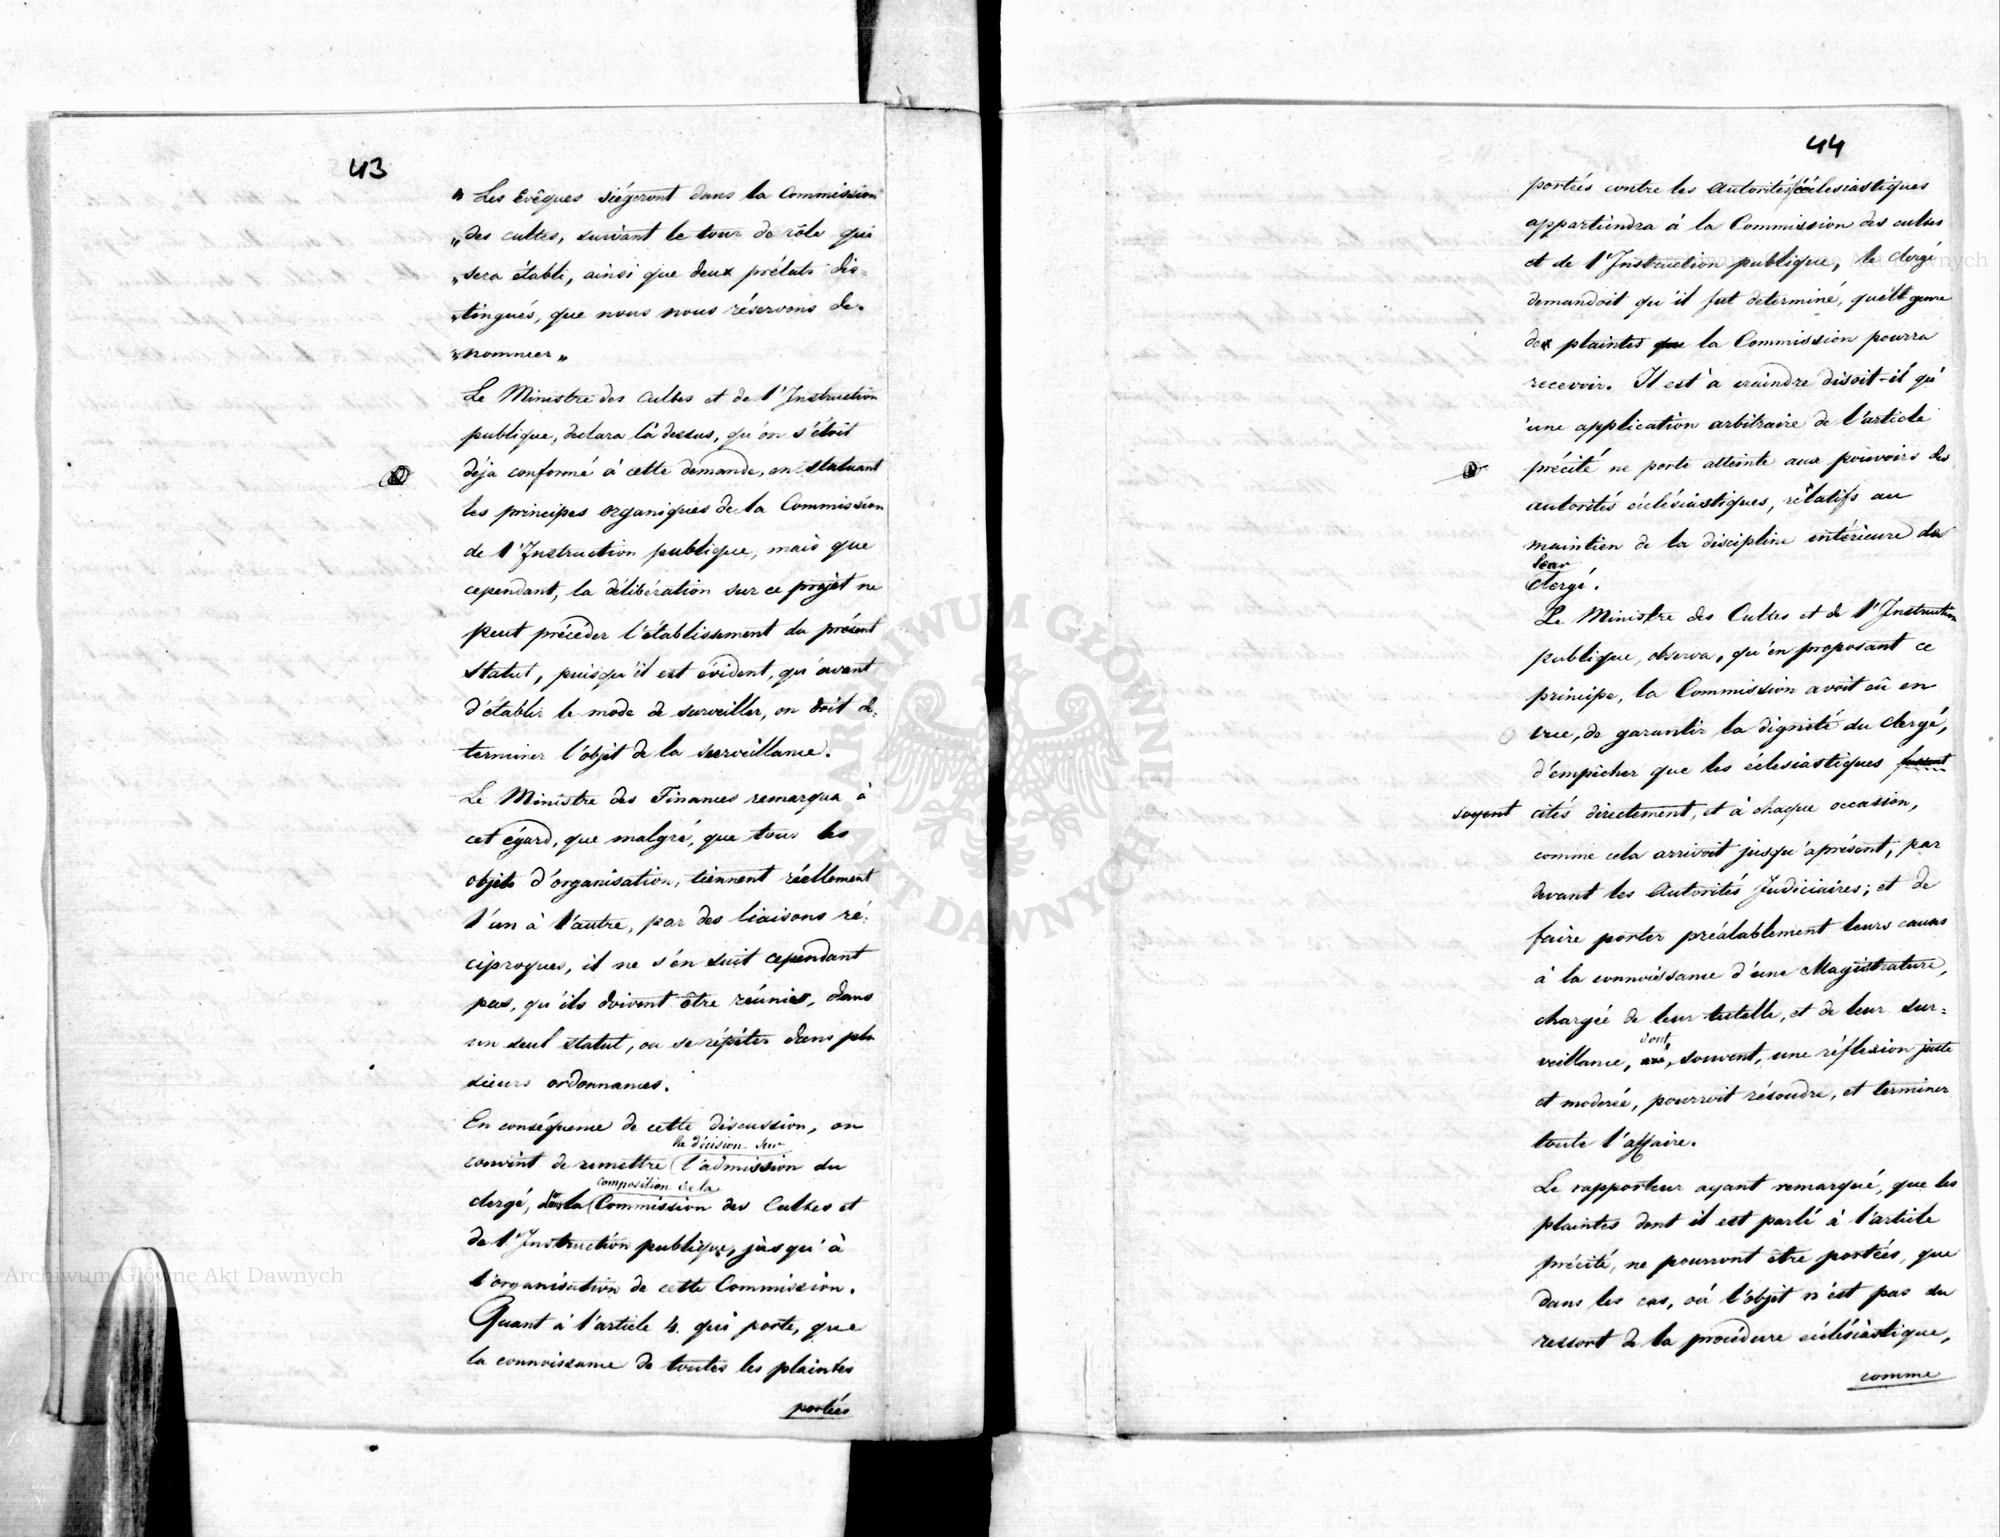 43
" Les Evêques siégeront dans la Commission
" des cultes, suivant le tour de rôle qui
" sera établi, ainsi que deux prélats dis=
" tingués, que nous nous réservons de
" nommer "
Le Ministre des Cultes et de l'Instruction
publique, declara là dessus, qu'on s'étoit
déja conformé à cette demande, en statuant
les principes organiques de la Commission
de l'Instruction publique, mais que
cependant, la délibération sur ce projet ne
peut précéder l'établissement du présent
statut, puisqu'il est évident, qu'avant
d'établir le mode de surveiller, on doit dé=
terminer l'objet de la surveillance.
Le Ministre des Finances remarqua à
cet égard, que malgré, que tous les
objets d'organisation, tiennent réellement
l'un à l'autre, par des liaisons ré=
ciproques, il ne s'en suit cependant
pas, qu'ils doivent être réunies, dans
un seul statut, ou se répéter dans plu
sieurs ordonnances.
En conséquence de cette discussion, on
la décision sur
convint de remettre l'admission du
composition de la
clergé, à la Commission des Cultes et
de l'Instruction publique, jusqu'à
l'organisation de cette Commission.
Quant à l'article 4. qui porte, que
la connoissance de toutes les plaintes
portées
44
portées contre les Autorités écclesiastiques
appartiendra à la Commission des cultes
et de l'Instruction publique, le clergé
demandoit qu'il fut determiné, quel genre
de plaintes que la Commission pourra
recevoir. Il est à craindre disoit-il qu'
une application arbitraire de l'article
précité ne porte atteinte aux pouvoirs des
autorités écclésiastiques, rélatifs au
maintien de la discipline intérieure du
leur
clergé.
Le Ministre des Cultes et de l'Instruction
publique, observa, qu'en proposant ce
principe, la Commission avoit eû en
vue, de garantir la dignité du clergé,
d'empêcher que les éclesiastiques fussent
soyent cités directement, et à chaque occasion,
comme cela arrivoit jusqu'aprésent, par
devant les Autorités Judiciaires; et de
faire porter préalablement leurs causes
à la connoissance d'une Magistrature,
chargée de leur tutelle, et de leur sur=
dont
veillance, souvent, une réflexion juste
et moderée, pourroit résoudre, et terminer
toute l'affaire.
Le rapporteur ayant remarqué, que les
plaintes dont il est parlé à l'article
précité, ne pourront être portées, que
dans les cas, où l'objet n'est pas du
ressort de la procédure écclésiastique,
comme
ARCHIWUM GŁÓWNE AKT DAWNYCH
Archiwum Główne Akt Dawnych
Archiwum Główne Akt Dawnych